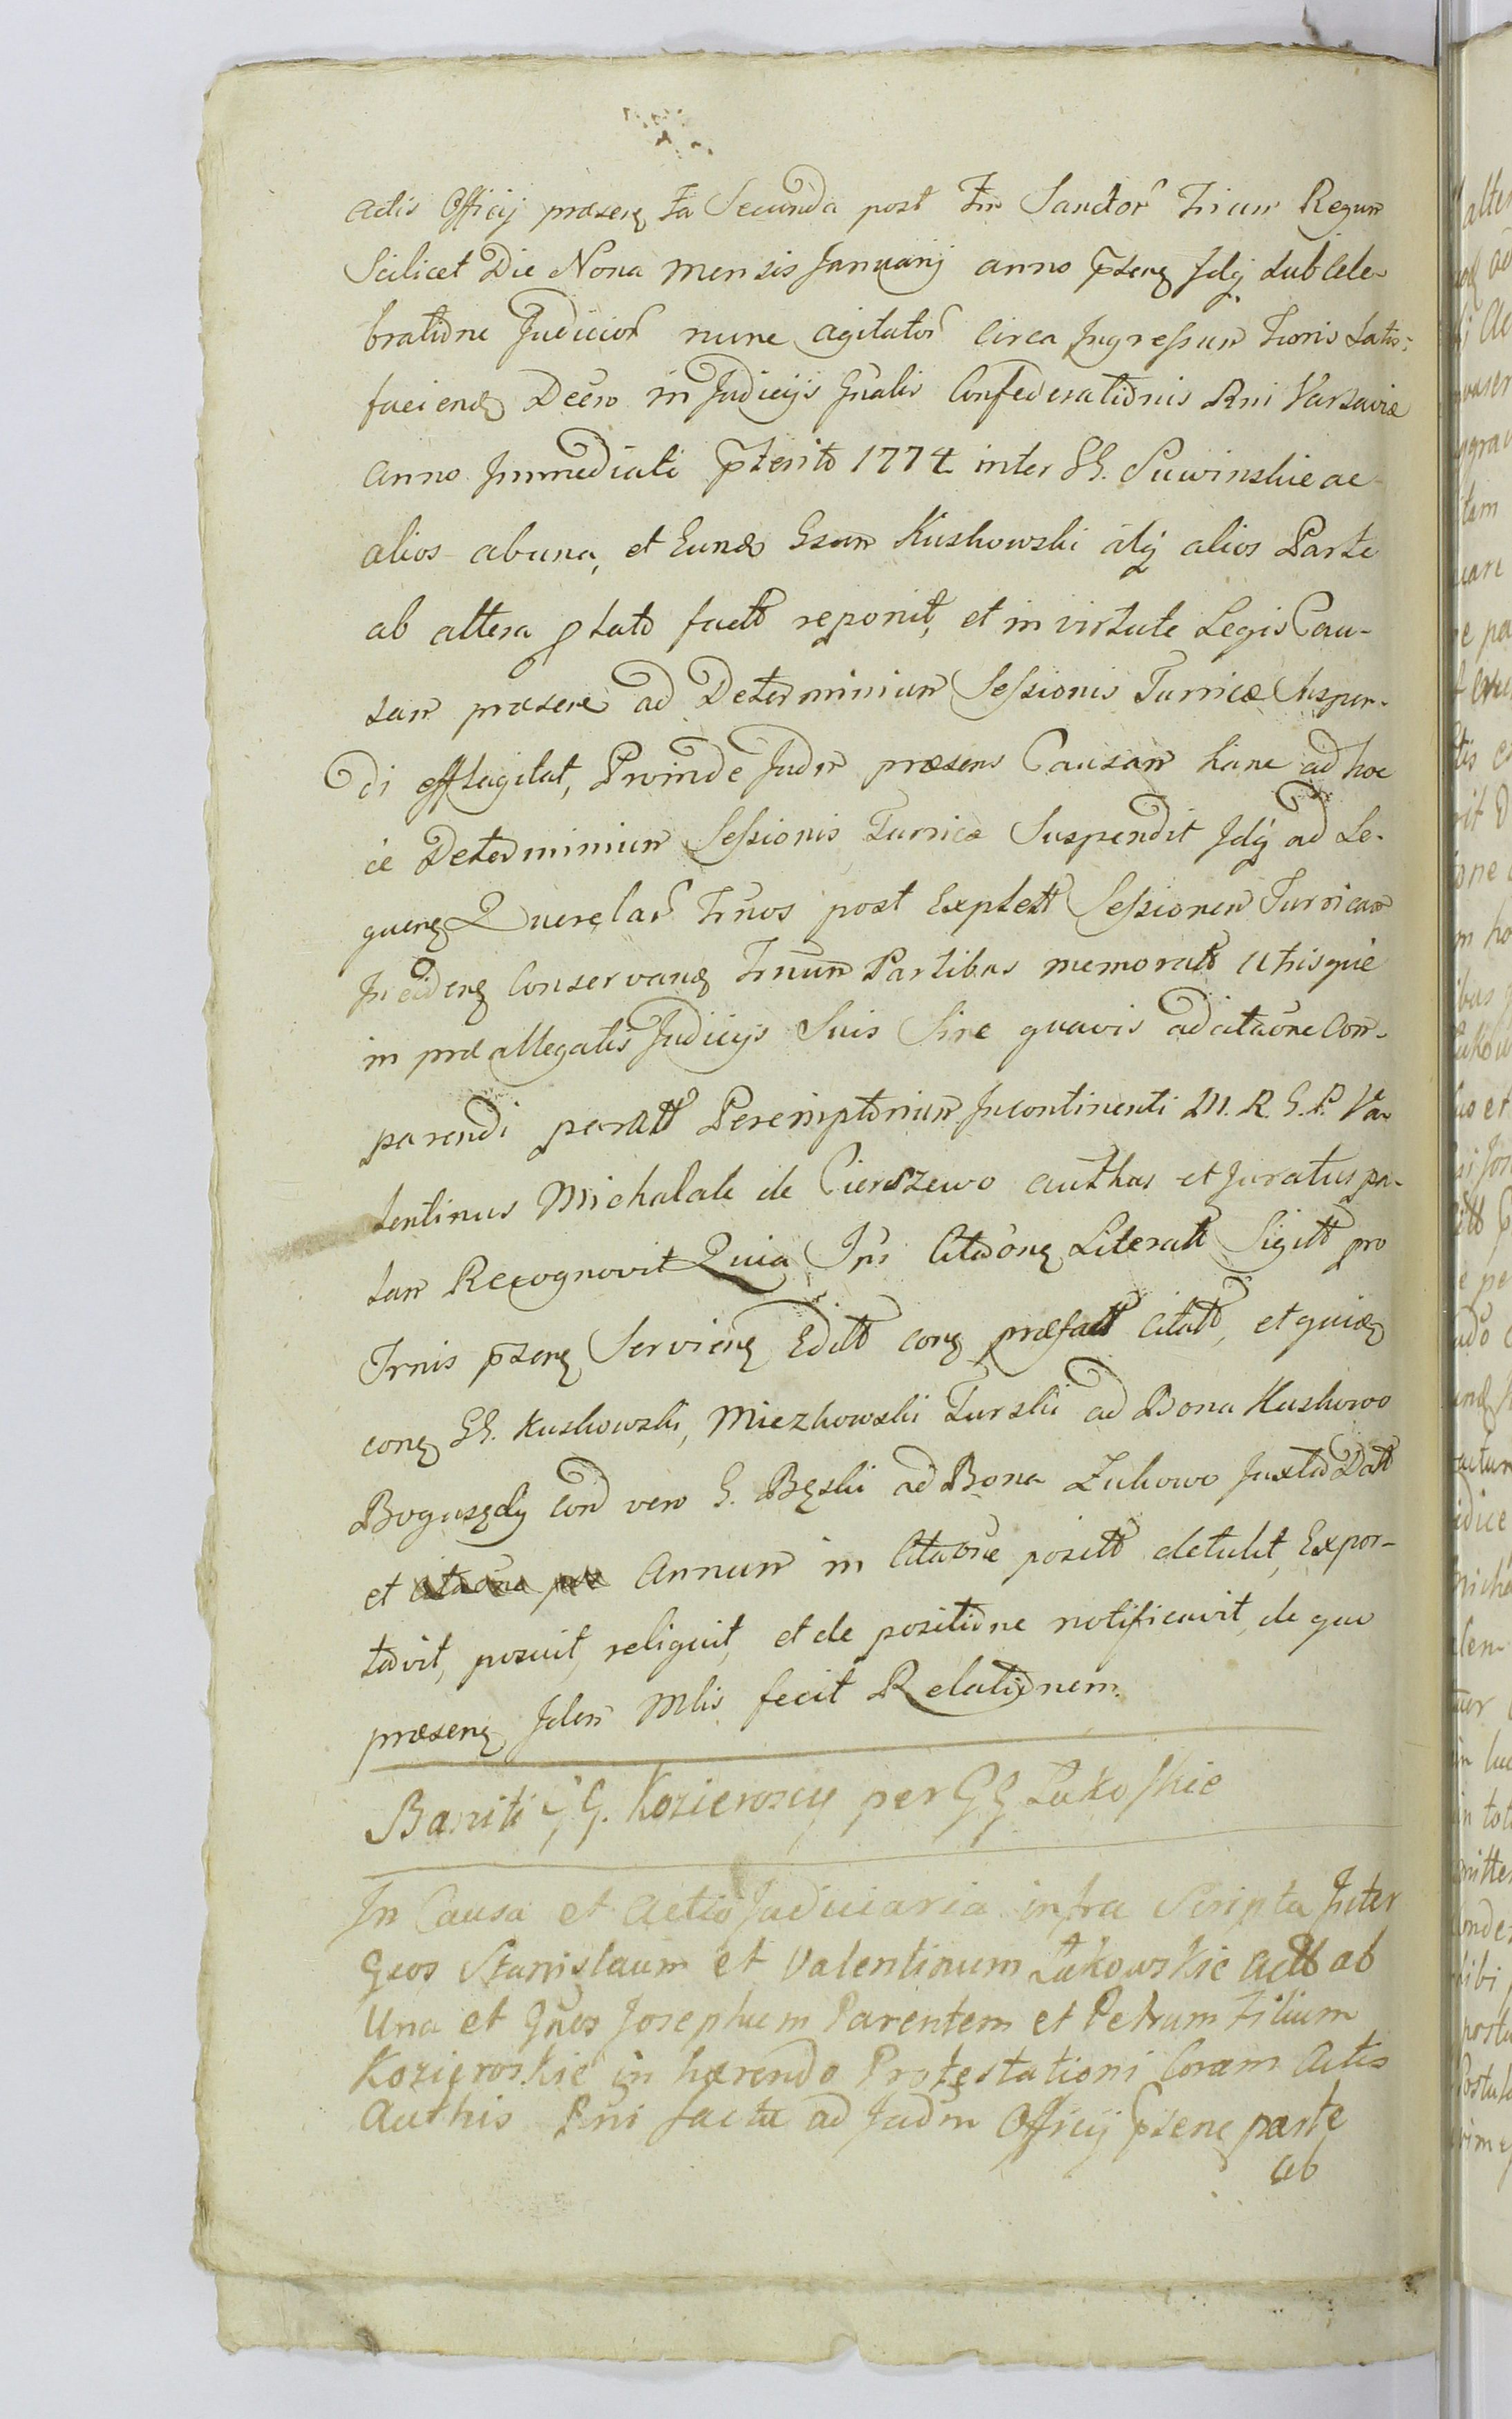 actis Officij præsenꝫ Fa Secunda post Fm Sanctor Trium Regum
Scilicet Die Nona mensis Januarij anno p̃senꝫ Idq́ sub cele-
bratione Judicior nunc agitator Circa Ingressum Turris Satis-
faciend Decro in Judicijs Gńalis Confederationis Rni Varsaviæ
anno Immediate p̃terito 1774 inter GG. Suwinskie ac
alios ab una, et Eund Gsum Kuskowski atq́ alios Parte
ab altera lato facto reponit, et in virtute Legis Cau-
sam præsene ad Determinium Sessionis Turricæ Suspen-
di efflagitat, Proinde Judm præsens Causam hanc ad hoc
ce Determinium Sessionis Turricæ Suspendit Idq́ ad Se-
quenꝫ Querelar Trnos post Expleтт Sessionem Turricam
Incidenꝫ Conservanꝫ Trnum Partibus memoratt utrisque
in præallegatis Judicijs Suis Sine quavis adcitaõne Com-
parendi peratt Peremptorium Incontinenti M. R. G. P. Va-
lentinus Michalak de Cierszewo authus et juratus pa-
lam Recognovit Quia Ipse Citaõnꝫ Literatt Sigitt pro
Trnis p̃senꝫ Servienꝫ Editt conꝫ præfatt Citatt, et quidꝫ
conꝫ GG. Kuskowski, Miezkowski Turski ad Bona Kuskowo
Bogusędy cond vero G. Bęski ad Bona Zukowo Juxta Datt
et Annum in Citaõne positt detulit, Expor-
tavit, posuit, reliquit, et de positione notificavit, de quo
præsenꝫ Idem Mlis fecit Relationem.
Baniti GG. Kozieroscy per GG Lukoskie
In Causa et Actio Judiciaria infra Scripta Inter
Gsos Stanislaum et Valentinum Łukowskie Actt ab
Una et Gños Josephum Parentem et Petrum Filium
Kozieroskie in hærendo Protestationi Coram Actis
Authis Pñi facta ad Judm Officij p̃senc parte
ab